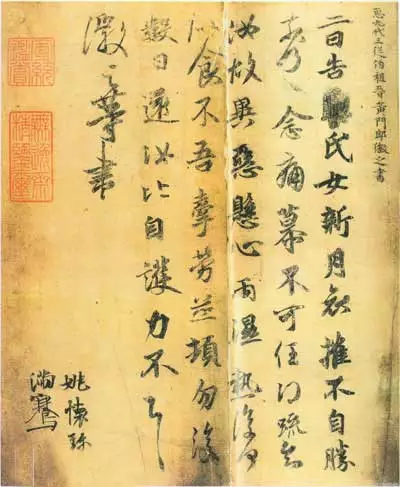 九代三從伯祖晉黃門郎徽之書
二日告氏女新月哀摧不自勝
奈何奈何念痛慕不可任得疏知
汝故異惡懸心雨濕熱復何
似食不吾牽勞並頓勿復
數日還汝比自護力不具
徽之等書
姚懷珍
滿騫